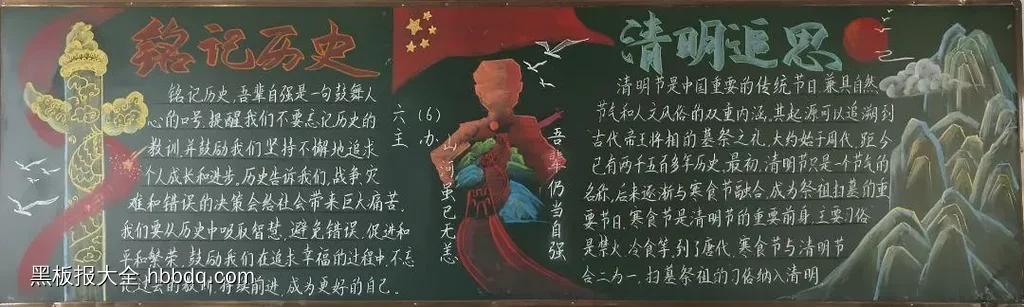 铭记历史
铭记历史,吾辈自强是一句鼓舞人
心的口号,提醒我们不要忘记历史的
教训并鼓励我们坚持不懈地追求
个人成长和进步,历史告诉我们,战争,灾
难和错误的决策会给社会带来巨大痛苦.
我们要从历史中吸取智慧,避免错误,促进和
平和繁荣,鼓励我们在追求幸福的过程中,不忘
记过去的教训,持续前进,成为更好的自己.
六(6)
主办
山河虽已无恙
吾辈仍当自强
清明追思
清明节是中国重要的传统节日,兼具自然
节气和人文风俗的双重内涵,其起源可以追溯到
古代帝王将相的墓祭之礼,大约始于周代,距今
已有两千五百多年历史,最初,清明节只是一个节气的
名称,后来逐渐与寒食节融合,成为祭祖扫墓的重
要节日,寒食节是清明节的重要前身,主要习俗
是禁火,冷食等,到了唐代,寒食节与清明节
合二为一,扫墓祭祖的习俗纳入清明
黑板报大全 hbbdq.com